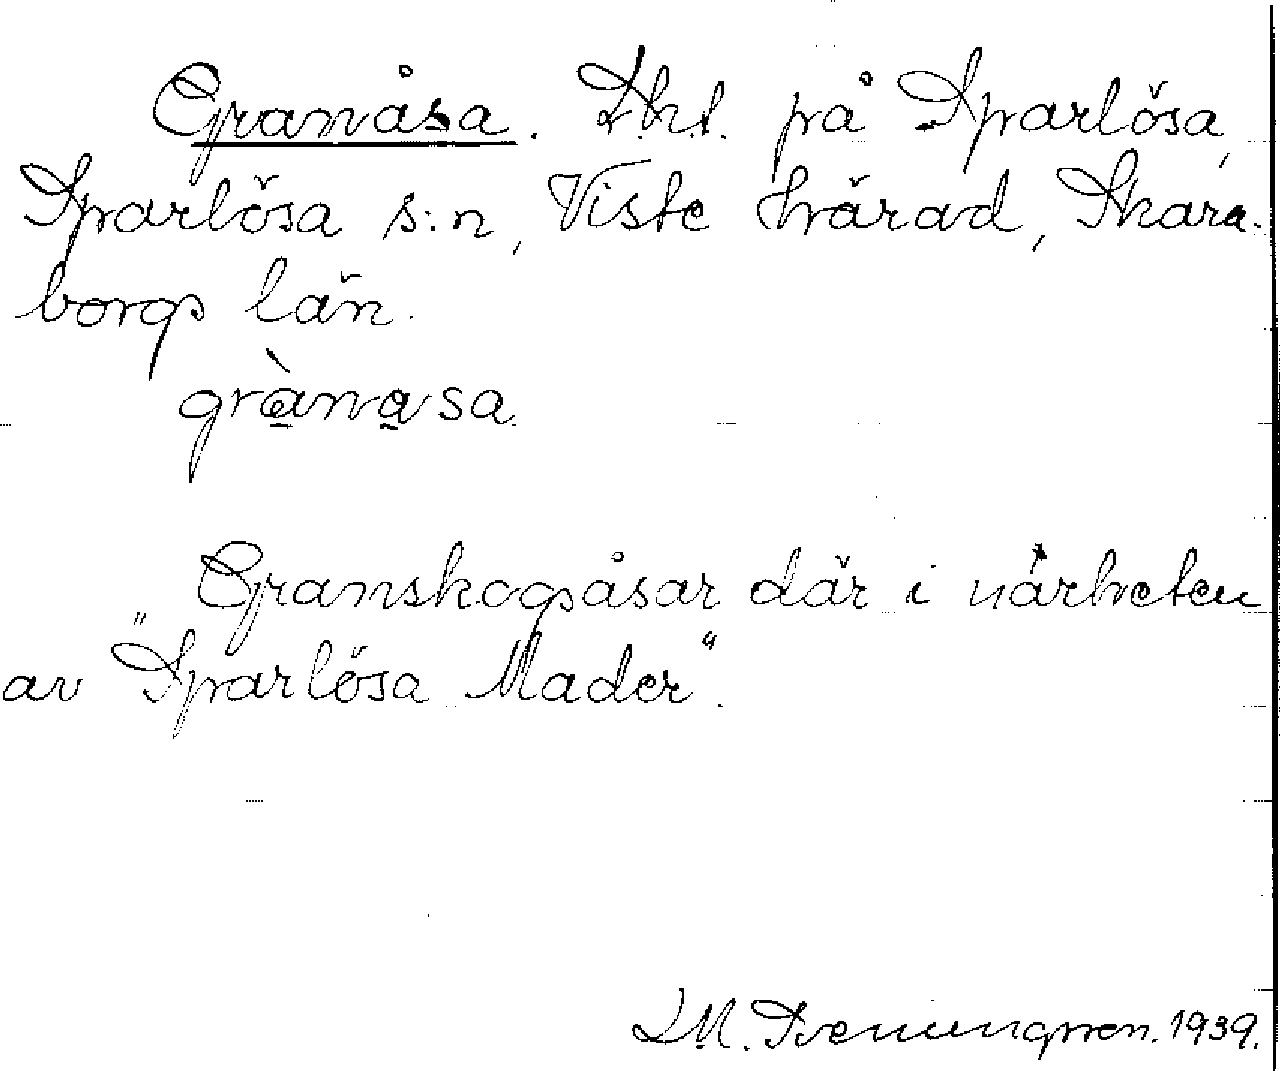 Granåsa. Lht. på Sparlösa,
Sparlösa s:n, Viste härad, Skara-
borgs län.
grànasa.
Granskogsåsar där i närheten
av "Sparlösa Mader".
1939.